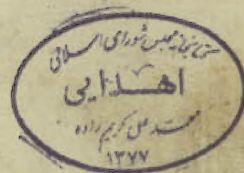 کتابخانه مجلس شورای اسلامی
اهدایی
محمد علی کریم زاده
۱۳۷۷